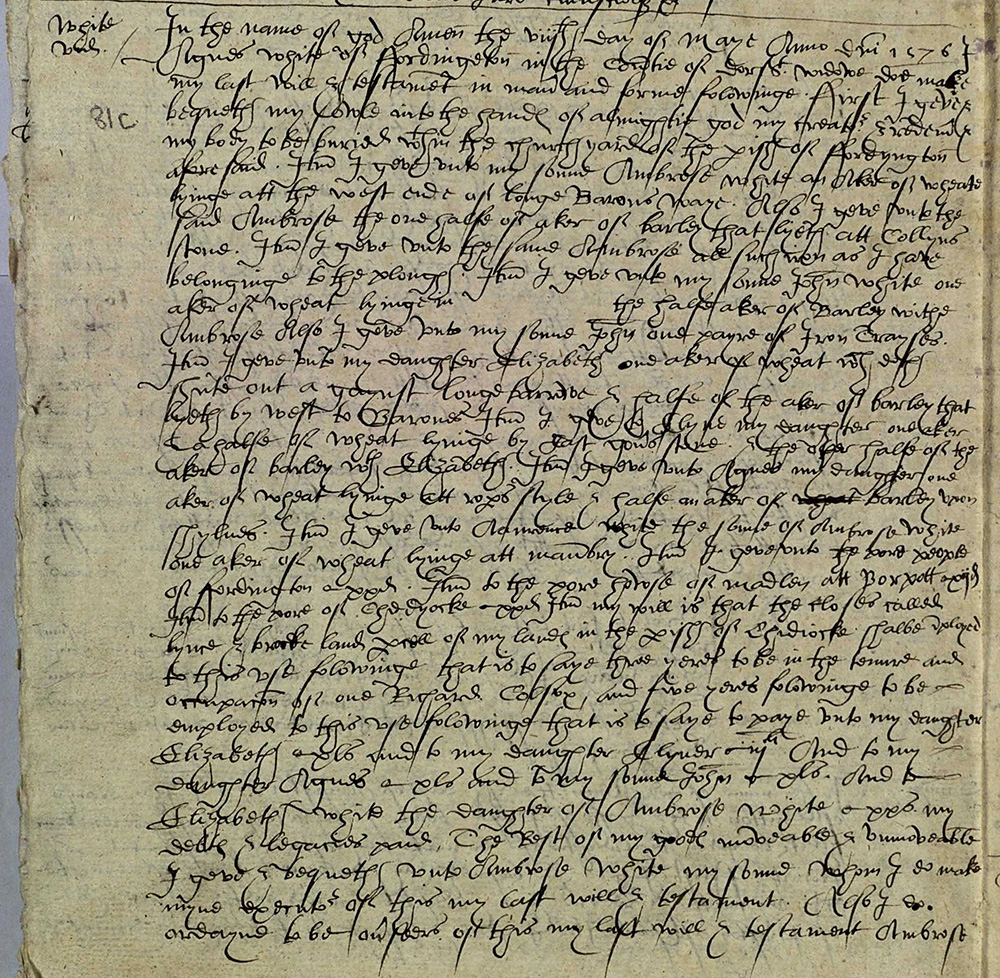 White
vid.
81c
In the name of god Amen the viijth day of Maye Anno dni 1576 I
Agnes White of ffordington in the Countie of Dorst widowe doe make
my last will & testamet in man and forme followinge. ffirst I geve &
bequeth my Sowle into the hand of almightie god my creator & redemer
my body to be buried wthin the churchyard of the pish of ffordyngton
aforesaid. Itm I geve unto my sonne Ambrose White an Aker of wheate
lyinge att the west ende of longe Barons waye. Also I geve unto the
said Ambrose the one halfe of aker of barley that lyeth att Collyns
stone. Itm I geve unto the same Ambrose all such iron as I have
belonginge to the plough. Itm I geve unto my sonne John White one
aker of wheat lyinge in the halfe aker of Barley withe
Ambrose Also I geve unto my sonne John one payre of Iron Trayses.
Itm I geve unto my daughter Elizabeth one aker of wheat wch doth
shute out a gaynst longe barrowe & halfe of the aker of barley that
lyeth by west to Barones Itm I geve to my daughter one aker
& halfe of wheat lyinge by stone. & the other halfe of the
aker of barley wth Elizabeth. Itm I geve unto Agnes my daughter one
aker of wheat lyinge att style & halfe an aker of wheat barley upon
Itm I geve unto Laurence White the sonne of Ambrose White
one aker of wheat lyinge att maubry. Itm I geve unto the pore people
of fordington xxd. Itm to the pore howse of madlen att
Itm to the pore of Chedyocke xxd Itm my will is that the closes called
lynce & land pcell of my land in the pish of Chidiocke shalbe
to this use followinge that is to saye three yeres to be in the tenure and
occupacon of one Richard Colfox, and five yeres followinge to be
employed to this use followinge that is to saye to paye unto my daughter
Elizabeth xls and to my daughter iijli And to my
daughter Agnes xls and to my sonne John xls. And to
Elizabeth White the daughter of Ambrose White xxs my
debts & legacies paid, The Rest of my good moveable & unmoveable
I geve & bequeth unto Ambrose White my sonne whom I do make
myne executor of this my last will & testament. Also I do.
ordayne to be ovseers of this my last will & testament Ambrose